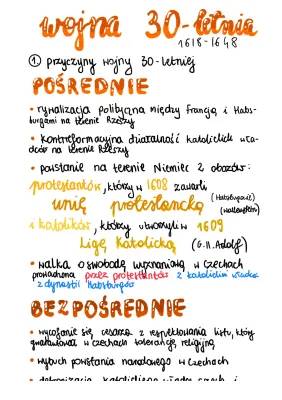 wojna 30-letnia
1618-1648
1. przyczyny wojny 30-letniej
POŚREDNIE
• rywalizacja polityczna między Francją i Habs-
burgami na terenie Rzeszy
• kontrreformacyjna działalność katolickich wła-
dców na terenie Rzeszy
• powstanie na terenie Niemiec 2 obozów:
protestantów, którzy w 1608 zawarli
unię protestancką (Habsburgowie)
(Wallenstein)
i katolików, którzy utworzyli w 1609
Ligę Katolicką (G.II.Adolf)
• walka o swobodę wyznaniową w Czechach
prowadzona przez protestantów z katolickim władcą
z dynastii Habsburgów
BEZPOŚREDNIE
• wycofanie się cesarza z respektowania listu, który
gwarantował w Czechach tolerancję religijną
• wybuch powstania narodowego w Czechach